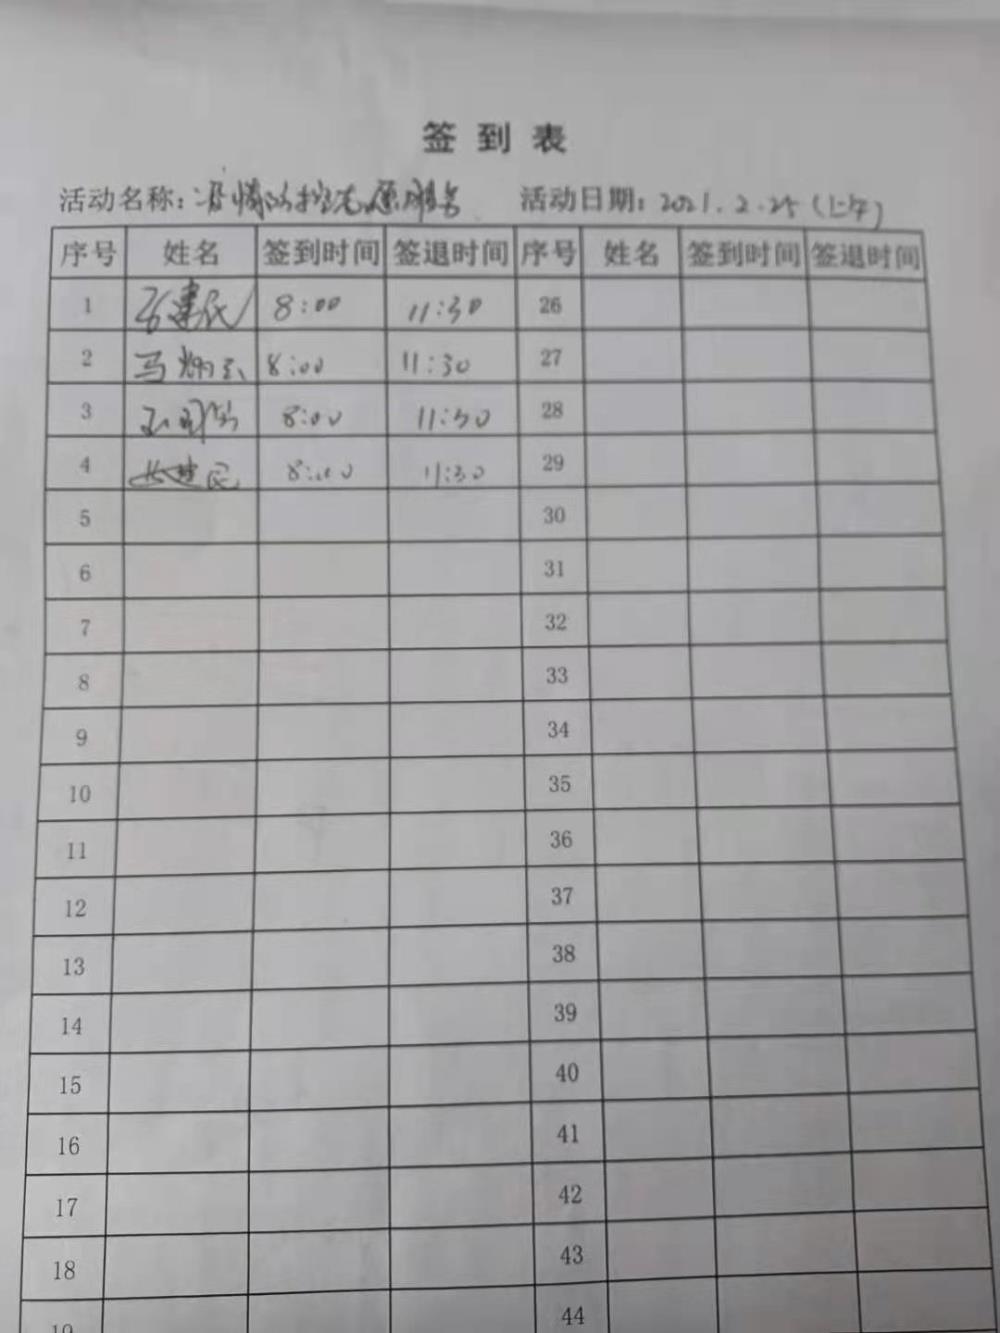 签到表
活动名称：疫情防控志愿服务 活动日期：2021.2.25（上午）
序号 姓名 签到时间 签退时间 序号 姓名 签到时间 签退时间
1 8:00 11:30 26
2 马炳玉 8:00 11:30 27
3 8:00 11:30 28
4 8:00 11:30 29
5 30
6 31
7 32
8 33
9 34
10 35
11 36
12 37
13 38
14 39
15 40
16 41
17 42
18 43
19 44